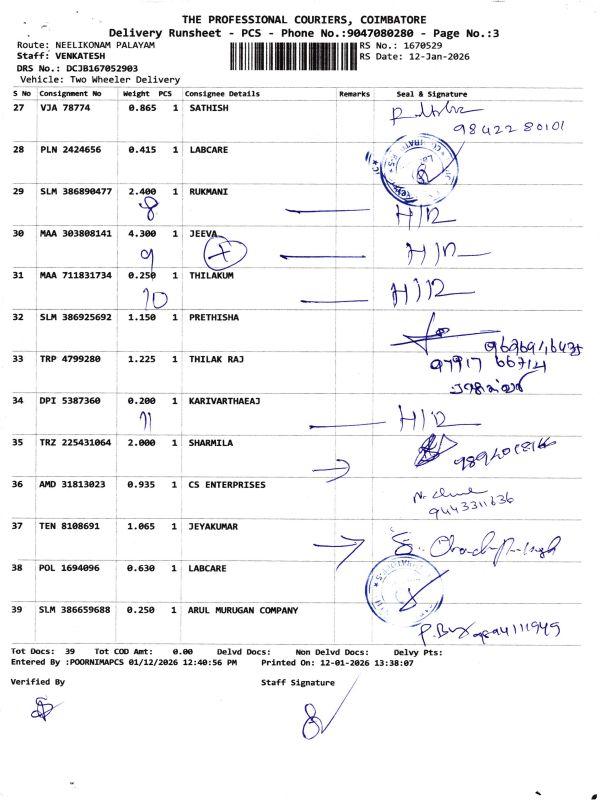 THE PROFESSIONAL COURIERS, COIMBATORE
Delivery Runsheet - PCS - Phone No.:9047080280 - Page No.:3
Route: NEELIKONAM PALAYAM RS No.: 1670529
Staff: VENKATESH RS Date: 12-Jan-2026
DRS No.: DCJB167052903
Vehicle: Two Wheeler Delivery
S No Consignment No Weight PCS Consignee Details Remarks Seal & Signature
27 VJA 78774 0.865 1 SATHISH
98422 80101
28 PLN 2424656 0.415 1 LABCARE
29 SLM 386890477 2.400 1 RUKMANI
8 H/R
30 MAA 303808141 4.300 1 JEEVA
9 H/R
31 MAA 711831734 0.250 1 THILAKUM
10 H/R
32 SLM 386925692 1.150 1 PRETHISHA
33 TRP 4799280 1.225 1 THILAK RAJ 97917 66714
34 DPI 5387360 0.200 1 KARIVARTHAEAJ
11 H/R
35 TRZ 225431064 2.000 1 SHARMILA
36 AMD 31813023 0.935 1 CS ENTERPRISES
9443311636
37 TEN 8108691 1.065 1 JEYAKUMAR
38 POL 1694096 0.630 1 LABCARE
39 SLM 386659688 0.250 1 ARUL MURUGAN COMPANY
Tot Docs: 39 Tot COD Amt: 0.00 Delvd Docs: Non Delvd Docs: Delvy Pts:
Entered By :POORNIMAPCS 01/12/2026 12:40:56 PM Printed On: 12-01-2026 13:38:07
Verified By Staff Signature